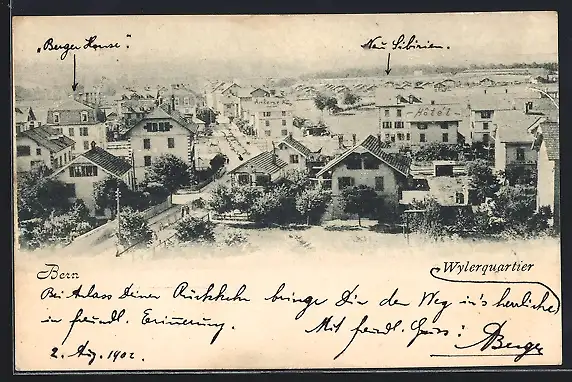 „Berger House".
Neu Sibirien.
Hôtel
Bern
Wylerquartier
Bei Anlass Deiner Rückkehr bringe Dir den Weg in's herrliche
in freundl. Erinnerung. Mit freundl. Gruss:
2. Aug. 1902. ABerger